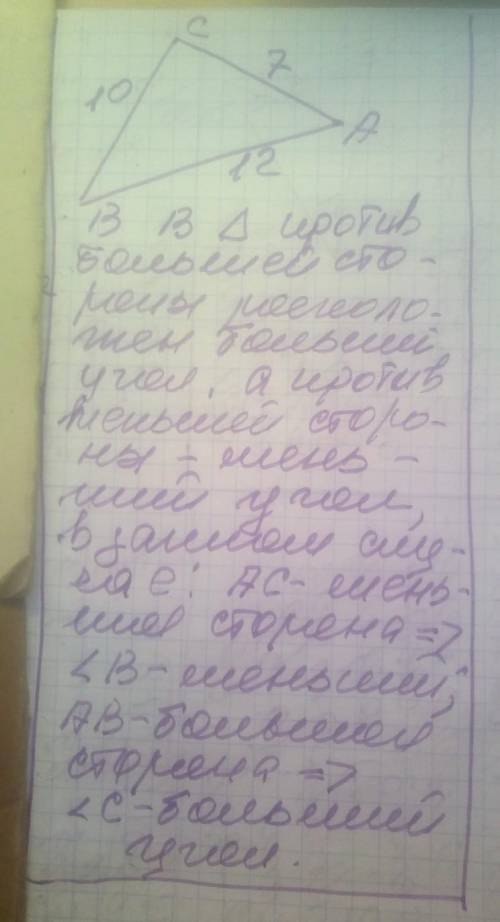 C
10 7
A
12
B В Δ против
большей сто-
роны располо-
жен больший
угол, а против
меньшей сторо-
ны - мень-
ший угол,
в данном слу-
чае: AC - мень-
шая сторона =>
<B - меньший;
AB - большая
сторона =>
<C - больший
угол.